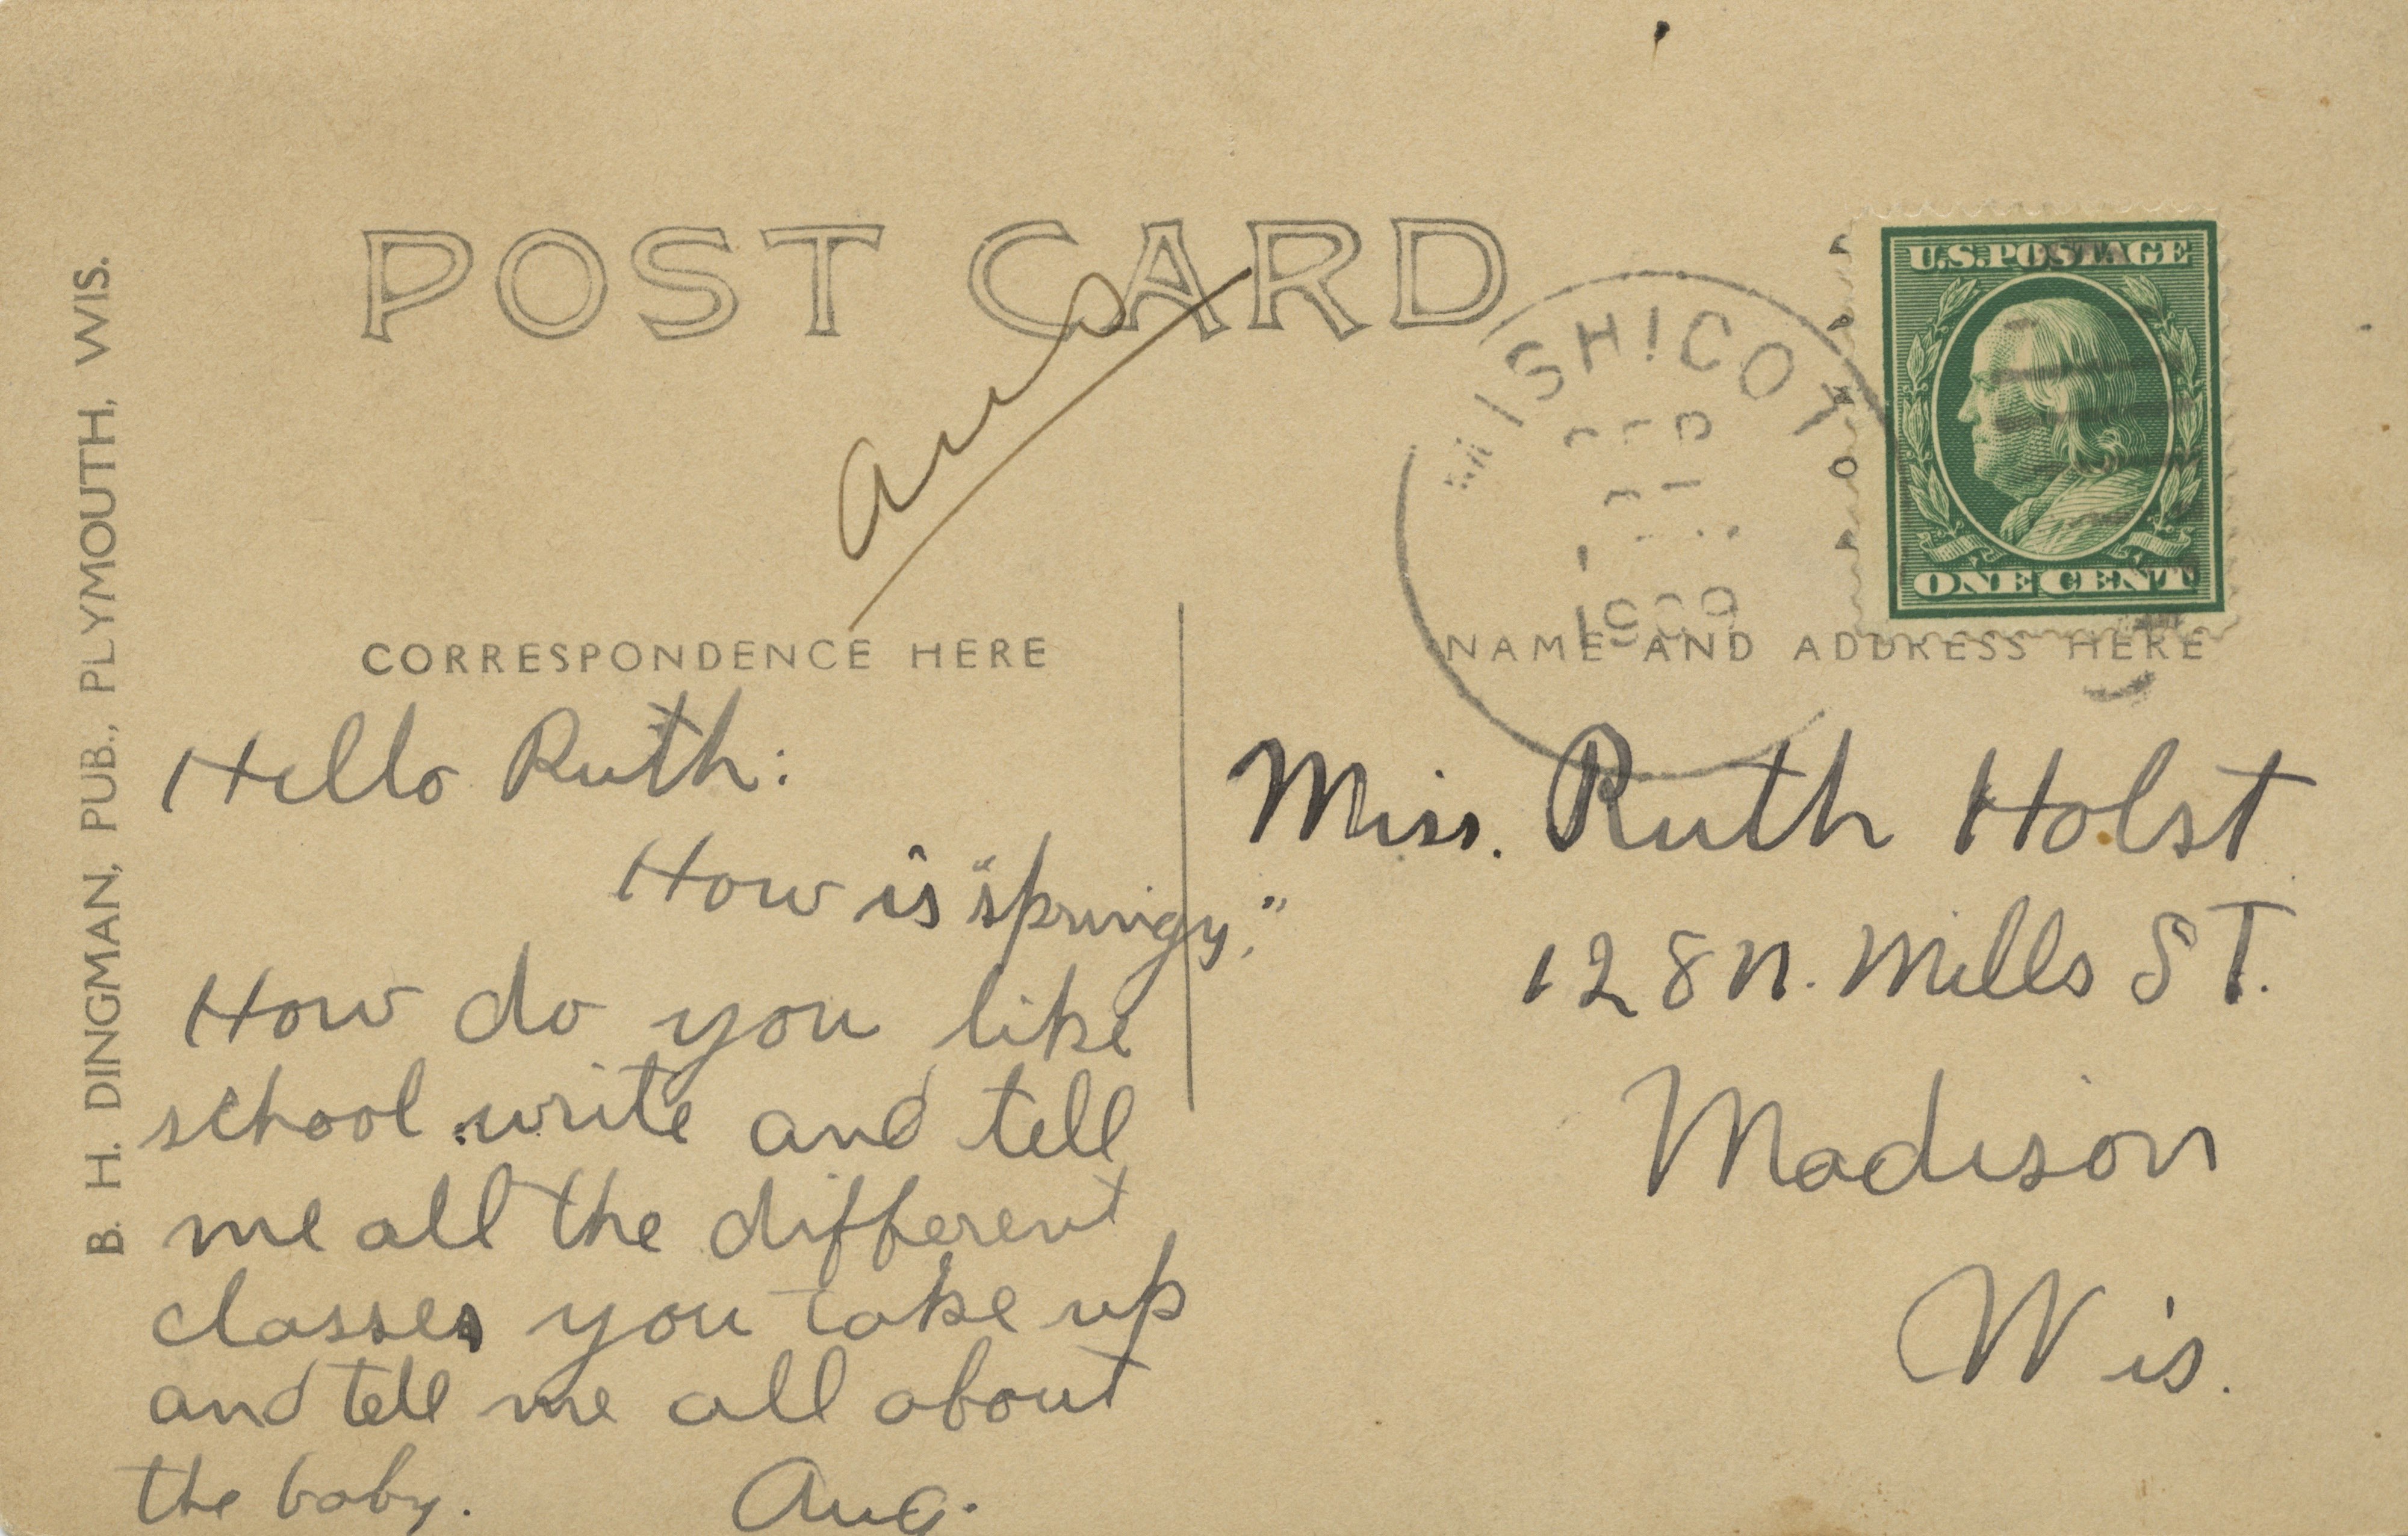 B. H. DINGMAN, PUB., PLYMOUTH, WIS.
POST CARD
MISHICOT
1909
U.S. POSTAGE
ONE CENT
CORRESPONDENCE HERE
NAME AND ADDRESS HERE
Hello Ruth:
How is "springy."
How do you like
school write and tell
me all the different
classes you take up
and tell me all about
the baby. Aug.
Miss. Ruth Holst
128 N. Mills ST.
Madison
Wis.